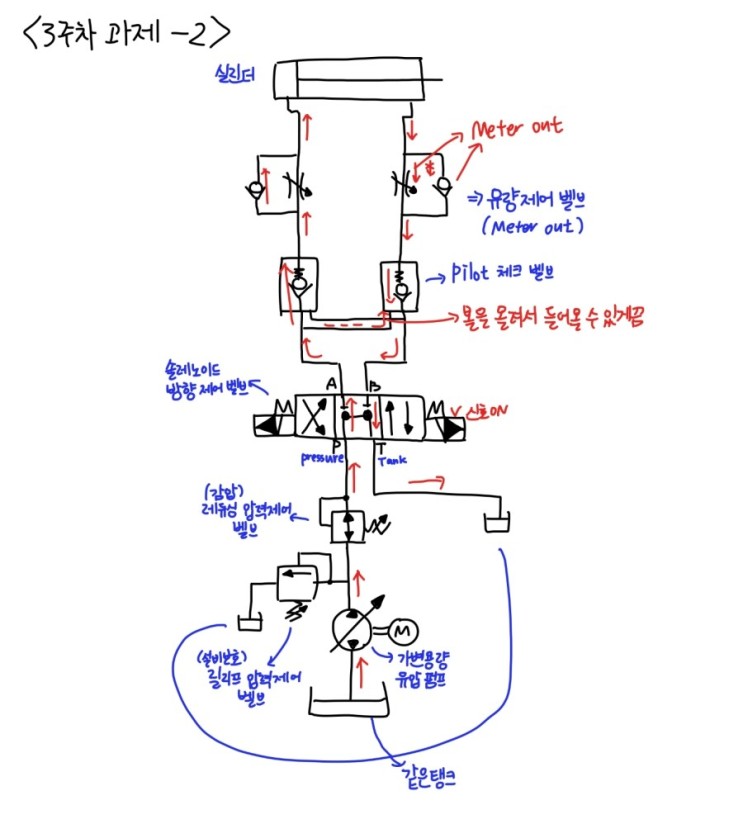 <3주차 과제 -2>
실린더
Meter out
⇒ 유량 제어 벨브
(Meter out)
→ Pilot 체크 벨브
볼을 올려서 들어올 수 있게끔
솔레노이드
방향 제어 벨브
A B
M M
신호ON
P T
pressure Tank
(감압)
레듀싱 압력제어
벨브
M
(설비보호)
릴리프 압력제어
벨브
가변용량
유압 펌프
같은탱크